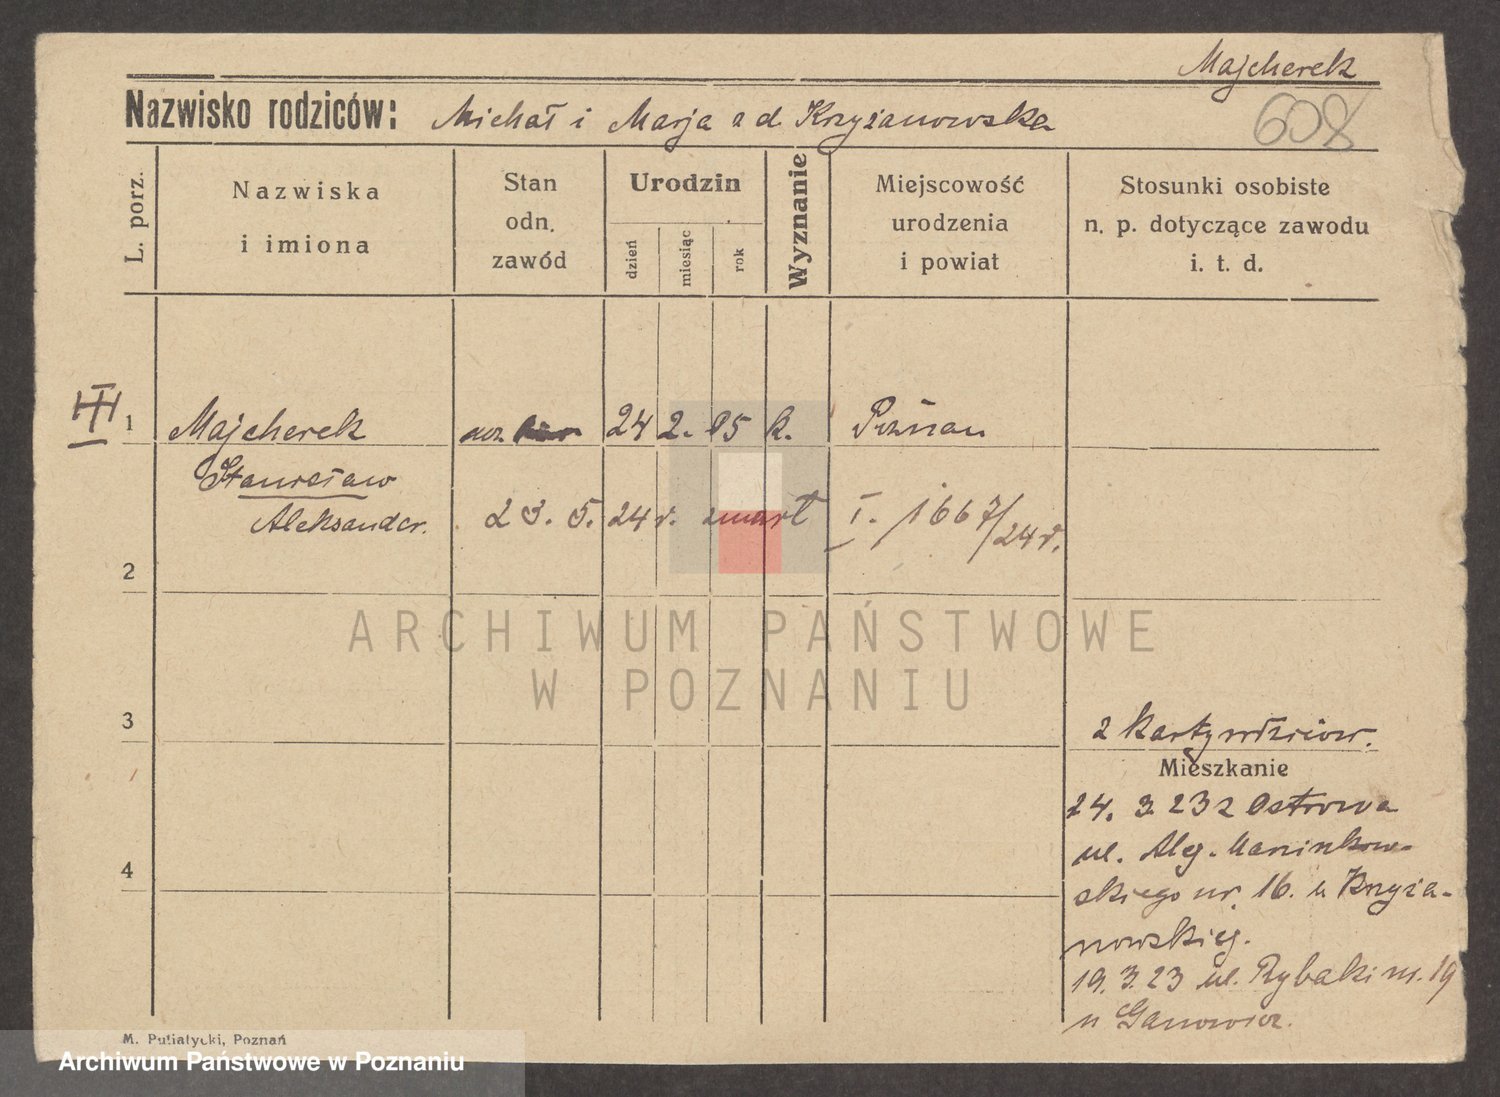 Majcherek
Nazwisko rodziców: Michał i Marja z d. Krzyżanowska
608
L. porz.
Nazwiska
i imiona
Stan
odn.
zawód
Urodzin
dzień
miesiąc
rok
Wyznanie
Miejscowość
urodzenia
i powiat
Stosunki osobiste
n. p. dotyczące zawodu
i. t. d.
III
1 Majcherek 24 2. 05 k. Poznań
Stanisław
Aleksander. 23. 5. 24 r. zmarł I. 1667/24 r.
2
ARCHIWUM PAŃSTWOWE
W POZNANIU
3
2 karty rodziców.
Mieszkanie
24. 3. 23 z Ostrowa
ul. Alej. Marcinkow-
4
skiego nr. 16. u Krzyża-
nowskiej.
19. 3. 23 ul. Rybaki nr. 19
u Ganowicz.
M. Putiatycki, Poznań
Archiwum Państwowe w Poznaniu